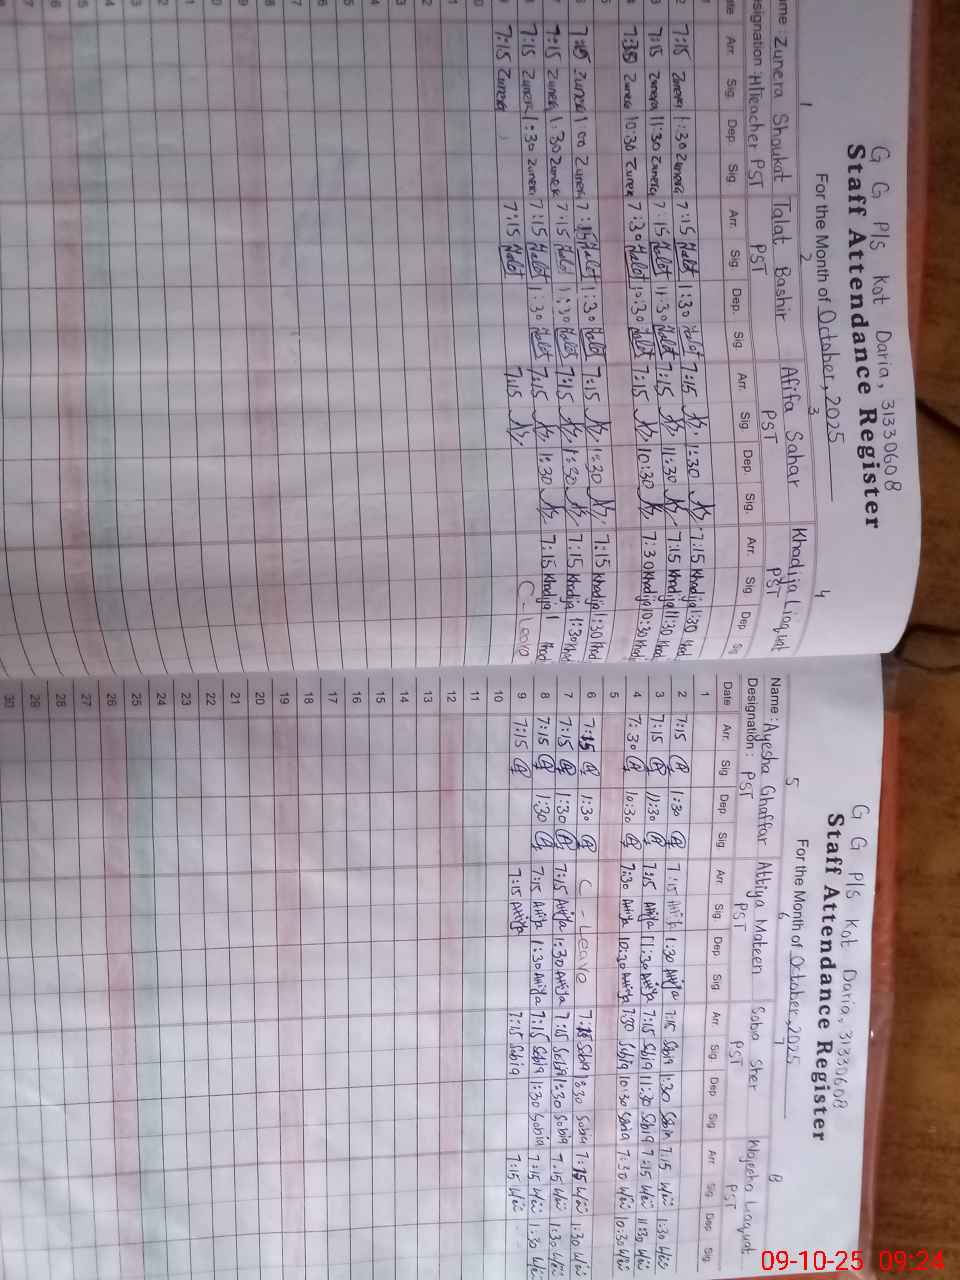 G G P/s Kot Daria, 31330608
Staff Attendance Register
For the Month of October, 2025
1 2 3 4
Name: Zunera Shoukat Talat Bashir Afifa Sahar Khadija Liaquat
Designation: H/Teacher PST PST PST PST
Arr. Sig. Dep. Sig Arr. Sig. Dep. Sig. Arr. Sig Dep. Sig. Arr. Sig Dep
2 7:15 Zunera 1:30 Zunera 7:15 Talat 1:30 Talat 7:15 1:30 7:15 Khadija 1:30
3 7:15 Zunera 11:30 Zunera 7:15 Talat 11:30 Talat 7:15 11:30 7:15 Khadija 11:30
4 7:30 Zunera 10:30 Zunera 7:30 Talat 10:30 Talat 7:15 10:30 7:30 Khadija 10:30
7:15 Zunera 1:00 Zunera 7:15 Talat 1:30 Talat 7:15 1:30 7:15 Khadija 1:30
7:15 Zunera 1:30 Zunera 7:15 Talat 1:30 Talat 7:15 1:30 7:15 Khadija 1:30
7:15 Zunera 1:30 Zunera 7:15 Talat 1:30 Talat 7:15 1:30 7:15 Khadija
7:15 Zunera 7:15 Talat 7:15 C-Leave
G G P/s Kot Daria, 31330608
Staff Attendance Register
For the Month of October, 2025
5 6 7 8
Name: Ayesha Ghaffar Attiya Mateen Sobia Sher Wajeeha Liaquat
Designation: PST PST PST PST
Date Arr. Sig Dep Sig Arr Sig. Dep Sig. Arr. Sig. Dep Sig. Arr Sig. Dep Sig.
1
2 7:15 1:30 7:15 Attiya 1:30 Attiya 7:15 Sobia 1:30 Sobia 7:15 1:30
3 7:15 11:30 7:15 Attiya 11:30 Attiya 7:15 Sobia 11:30 Sobia 7:15 11:30
4 7:30 10:30 7:30 Attiya 10:30 Attiya 7:30 Sobia 10:30 Sobia 7:30 10:30
5
6 7:15 1:30 C - Leave 7:15 Sobia 1:30 Sobia 7:15 1:30
7 7:15 1:30 7:15 Attiya 1:30 Attiya 7:15 Sobia 1:30 Sobia 7:15 1:30
8 7:15 1:30 7:15 Attiya 1:30 Attiya 7:15 Sobia 1:30 Sobia 7:15 1:30
9 7:15 7:15 Attiya 7:15 Sobia 7:15
10
11
12
13
14
15
16
17
18
19
20
21
22
23
24
25
26
27
28
29
30
09-10-25 09:24